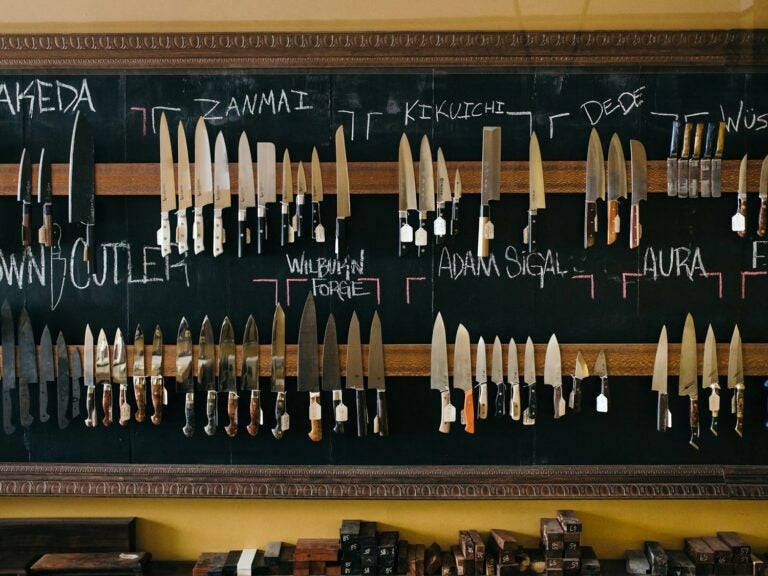 AKEDA
ZANMAI
KIKUICHI
DEDE
WÜS
OWN CUTLER
WILBURN
FORGE
ADAM SIGAL
AURA